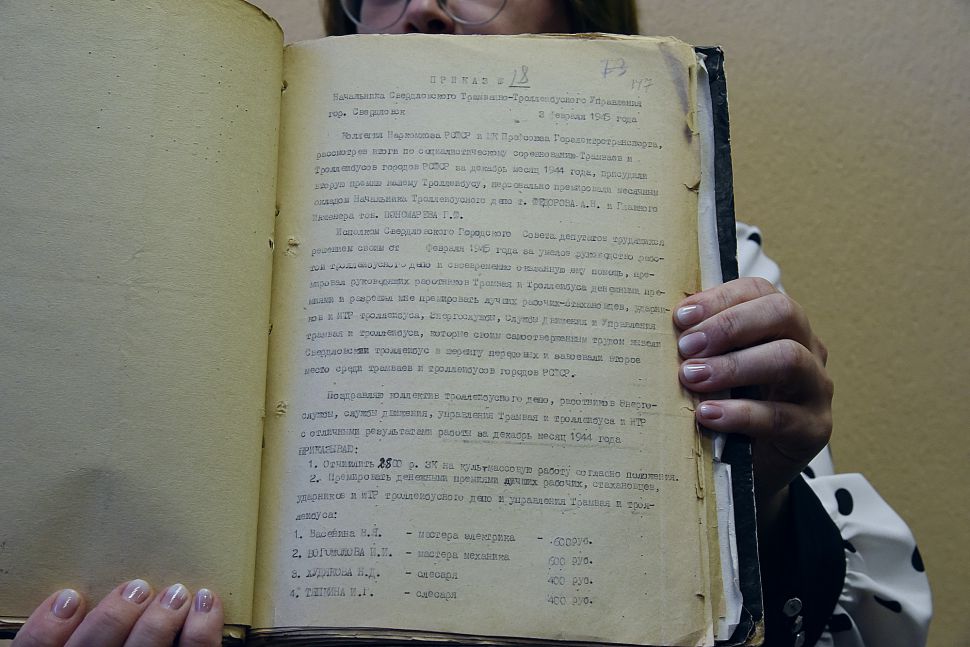 ПРИКАЗ № 18
147
Начальника Свердловского Трамвайно-Троллейбусного Управления
гор. Свердловск 3 февраля 1945 года
Коллегия Наркомхоза РСФСР и ЦК Профсоюза Горэлектротранспорта,
рассмотрев итоги по социалистическому соревнованию Трамваев и
Троллейбусов городов РСФСР за декабрь месяц 1944 года, присудили
вторую премию нашему Троллейбусу, персонально премировали месячным
окладом Начальника Троллейбусного депо т. ФЕДОРОВА.А.Н. и Главного
Инженера тов. ПОНОМАРЕВА Г.Ф.
Исполком Свердловского Городского Совета депутатов трудящихся
решением своим от февраля 1945 года за умелое руководство рабо-
той троллейбусного депо и своевременно оказанную ему помощь, пре-
мировал руководящих работников Трамвая и Троллейбуса денежными пре-
миями и разрешил мне премировать лучших рабочих-стахановцев, ударни-
ков и ИТР троллейбуса, Энергослужбы, Службы Движения и Управления
трамвая и троллейбуса, которые своим самоотверженным трудом вывели
Свердловский троллейбус в шеренгу передовых и завоевали второе
место среди трамваев и троллейбусов городов РСФСР.
Поздравляю коллектив Троллейбусного депо, работников Энерго-
службы, службы движения, управления Трамвая и троллейбуса и ИТР
с отличными результатами работы за декабрь месяц 1944 года
ПРИКАЗЫВАЮ:
1. Отчислить 2800 р. ЗК на культмассовую работу согласно положения.
2. Премировать денежными премиями лучших рабочих, стахановцев,
ударников и ИТР троллейбусного депо и управления Трамвая и трол-
лейбуса:
1. Васевина В.Я. - мастера электрика - 600руб.
2. БОГОМОЛОВА И.И. - мастера механика 600 руб.
3. ХУДЯКОВА Н.Д. - слесаря 400 руб.
4. ТЯПКИНА И.Г. - слесаря 400 руб.